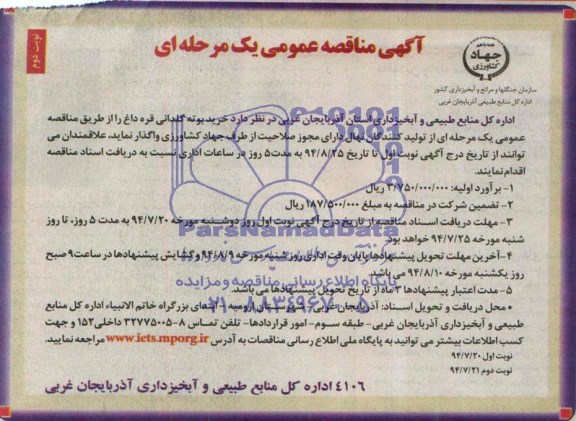 نوبت دوم
آگهی مناقصه عمومی یک مرحله ای
جهاد کشاورزی
سازمان جنگلها و مراتع و آبخیزداری کشور
اداره کل منابع طبیعی آذربایجان غربی
اداره کل منابع طبیعی و آبخیزداری استان آذربایجان غربی در نظر دارد خرید بوته گلدانی قره داغ را از طریق مناقصه
عمومی یک مرحله ای از تولید کنندگان نهال دارای مجوز صلاحیت از طرف جهاد کشاورزی واگذار نماید. علاقمندان می
توانند از تاریخ درج آگهی نوبت اول تا تاریخ ۹۴/۸/۲۵ به مدت ۵ روز در ساعات اداری نسبت به دریافت اسناد مناقصه
اقدام نمایند.
۱- برآورد اولیه: ۳/۷۵۰/۰۰۰/۰۰۰ ریال
۲- تضمین شرکت در مناقصه به مبلغ ۱۸۷/۵۰۰/۰۰۰ ریال
۳- مهلت دریافت اسناد مناقصه از تاریخ درج آگهی نوبت اول روز دوشنبه مورخه ۹۴/۷/۲۰ به مدت ۵ روز، تا روز
شنبه مورخه ۹۴/۷/۲۵ خواهد بود.
۴- آخرین مهلت تحویل پیشنهادها پایان وقت اداری روز شنبه مورخه ۹۴/۸/۹ و گشایش پیشنهادها در ساعت ۹ صبح
روز یکشنبه مورخه ۹۴/۸/۱۰ می باشد.
۵- مدت اعتبار پیشنهادها ۳ ماه از تاریخ تحویل پیشنهادها می باشد.
• محل دریافت و تحویل اسناد: آذربایجان غربی- شهرستان ارومیه - ابتدای بزرگراه خاتم الانبیاء اداره کل منابع
طبیعی و آبخیزداری آذربایجان غربی- طبقه سوم- امور قراردادها- تلفن تماس ۸-۳۲۷۷۵۰۰۵ داخلی ۱۵۲ و جهت
کسب اطلاعات بیشتر می توانید به پایگاه ملی اطلاع رسانی مناقصات به آدرس www.iets.mporg.ir مراجعه نمایید.
نوبت اول ۹۴/۷/۲۰
نوبت دوم ۹۴/۷/۲۱
۴۱۰۶ اداره کل منابع طبیعی و آبخیزداری آذربایجان غربی
ParsNamadData
پایگاه اطلاع رسانی مناقصه و مزایده
۰۲۱-۸۸۳۴۹۶۷۰-۵